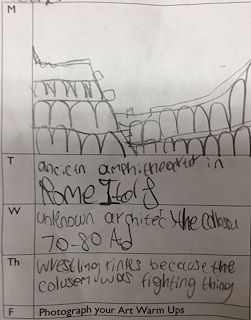 M
T
anceitn amphitheater in
Rome Italy
W
unknown architec the colosu
70-80 Ad
Th
wrestling rinks because the
colusem was fighting thing
F
Photograph your Art Warm Ups